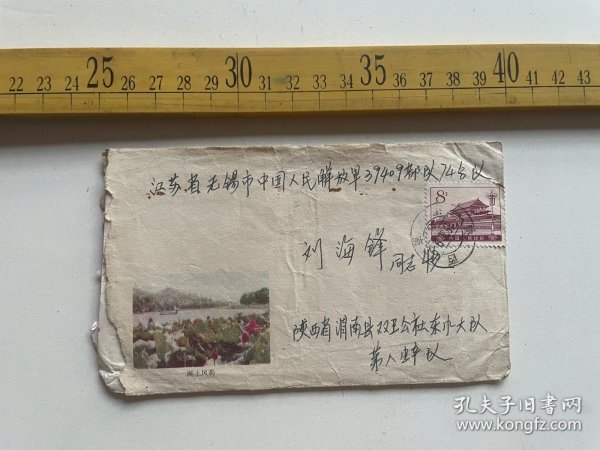 22 23 24 25 26 27 28 29 30 31 32 33 34 35 36 37 38 39 40 41 42 43
江苏省无锡市中国人民解放军39409部队74分队
8
刘海锋 同志收
陕西省渭南县双王公社东小大队
第八生产队
湖上风荷
孔夫子旧书网
www.kongfz.com